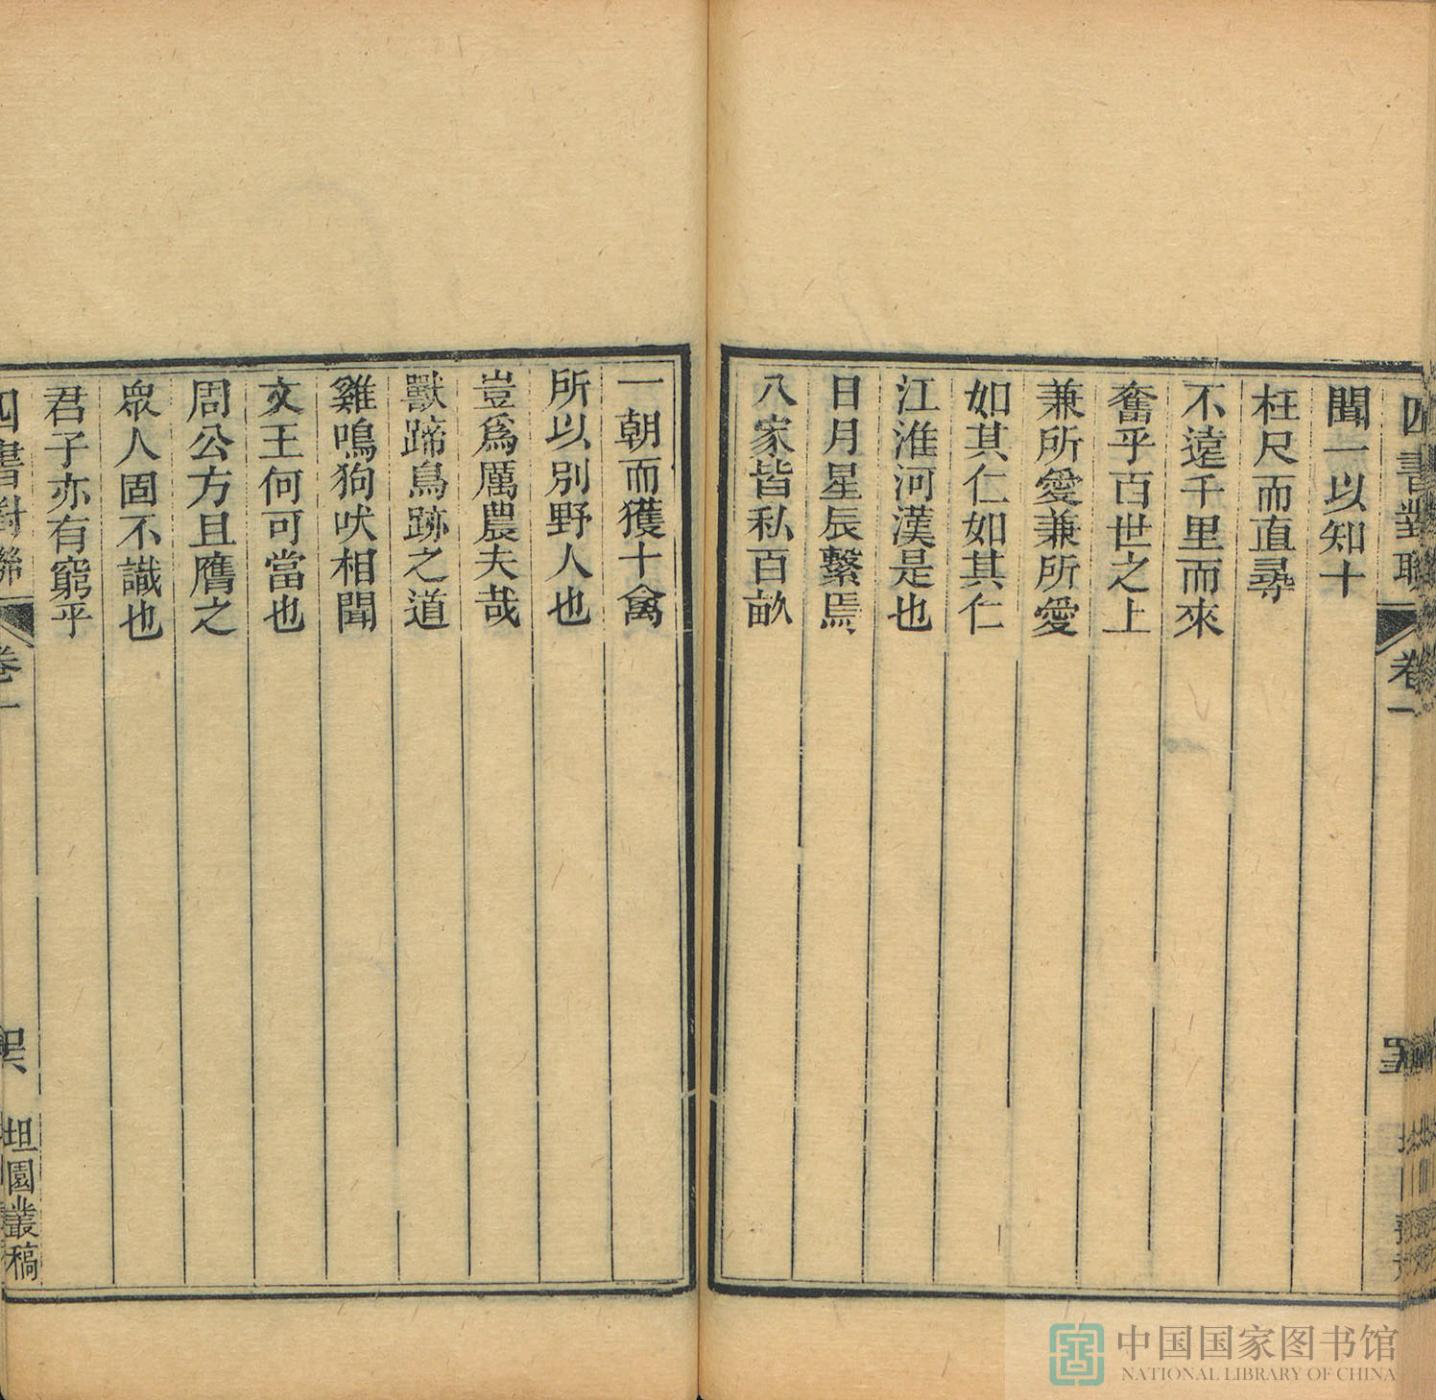 四書對聯 卷一
聞一以知十
枉尺而直尋
不遠千里而來
奮乎百世之上
兼所愛兼所愛
如其仁如其仁
江淮河漢是也
日月星辰繫焉
八家皆私百畝
一朝而獲十禽
所以別野人也
豈爲厲農夫哉
獸蹄鳥跡之道
雞鳴狗吠相聞
文王何可當也
周公方且膺之
衆人固不識也
君子亦有窮乎
四書對聯 卷一 坦園叢稿
中国国家图书馆
NATIONAL LIBRARY OF CHINA